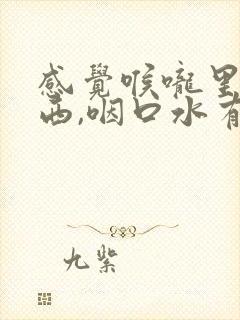 感覺喉嚨里
西,咽口水有
九紫